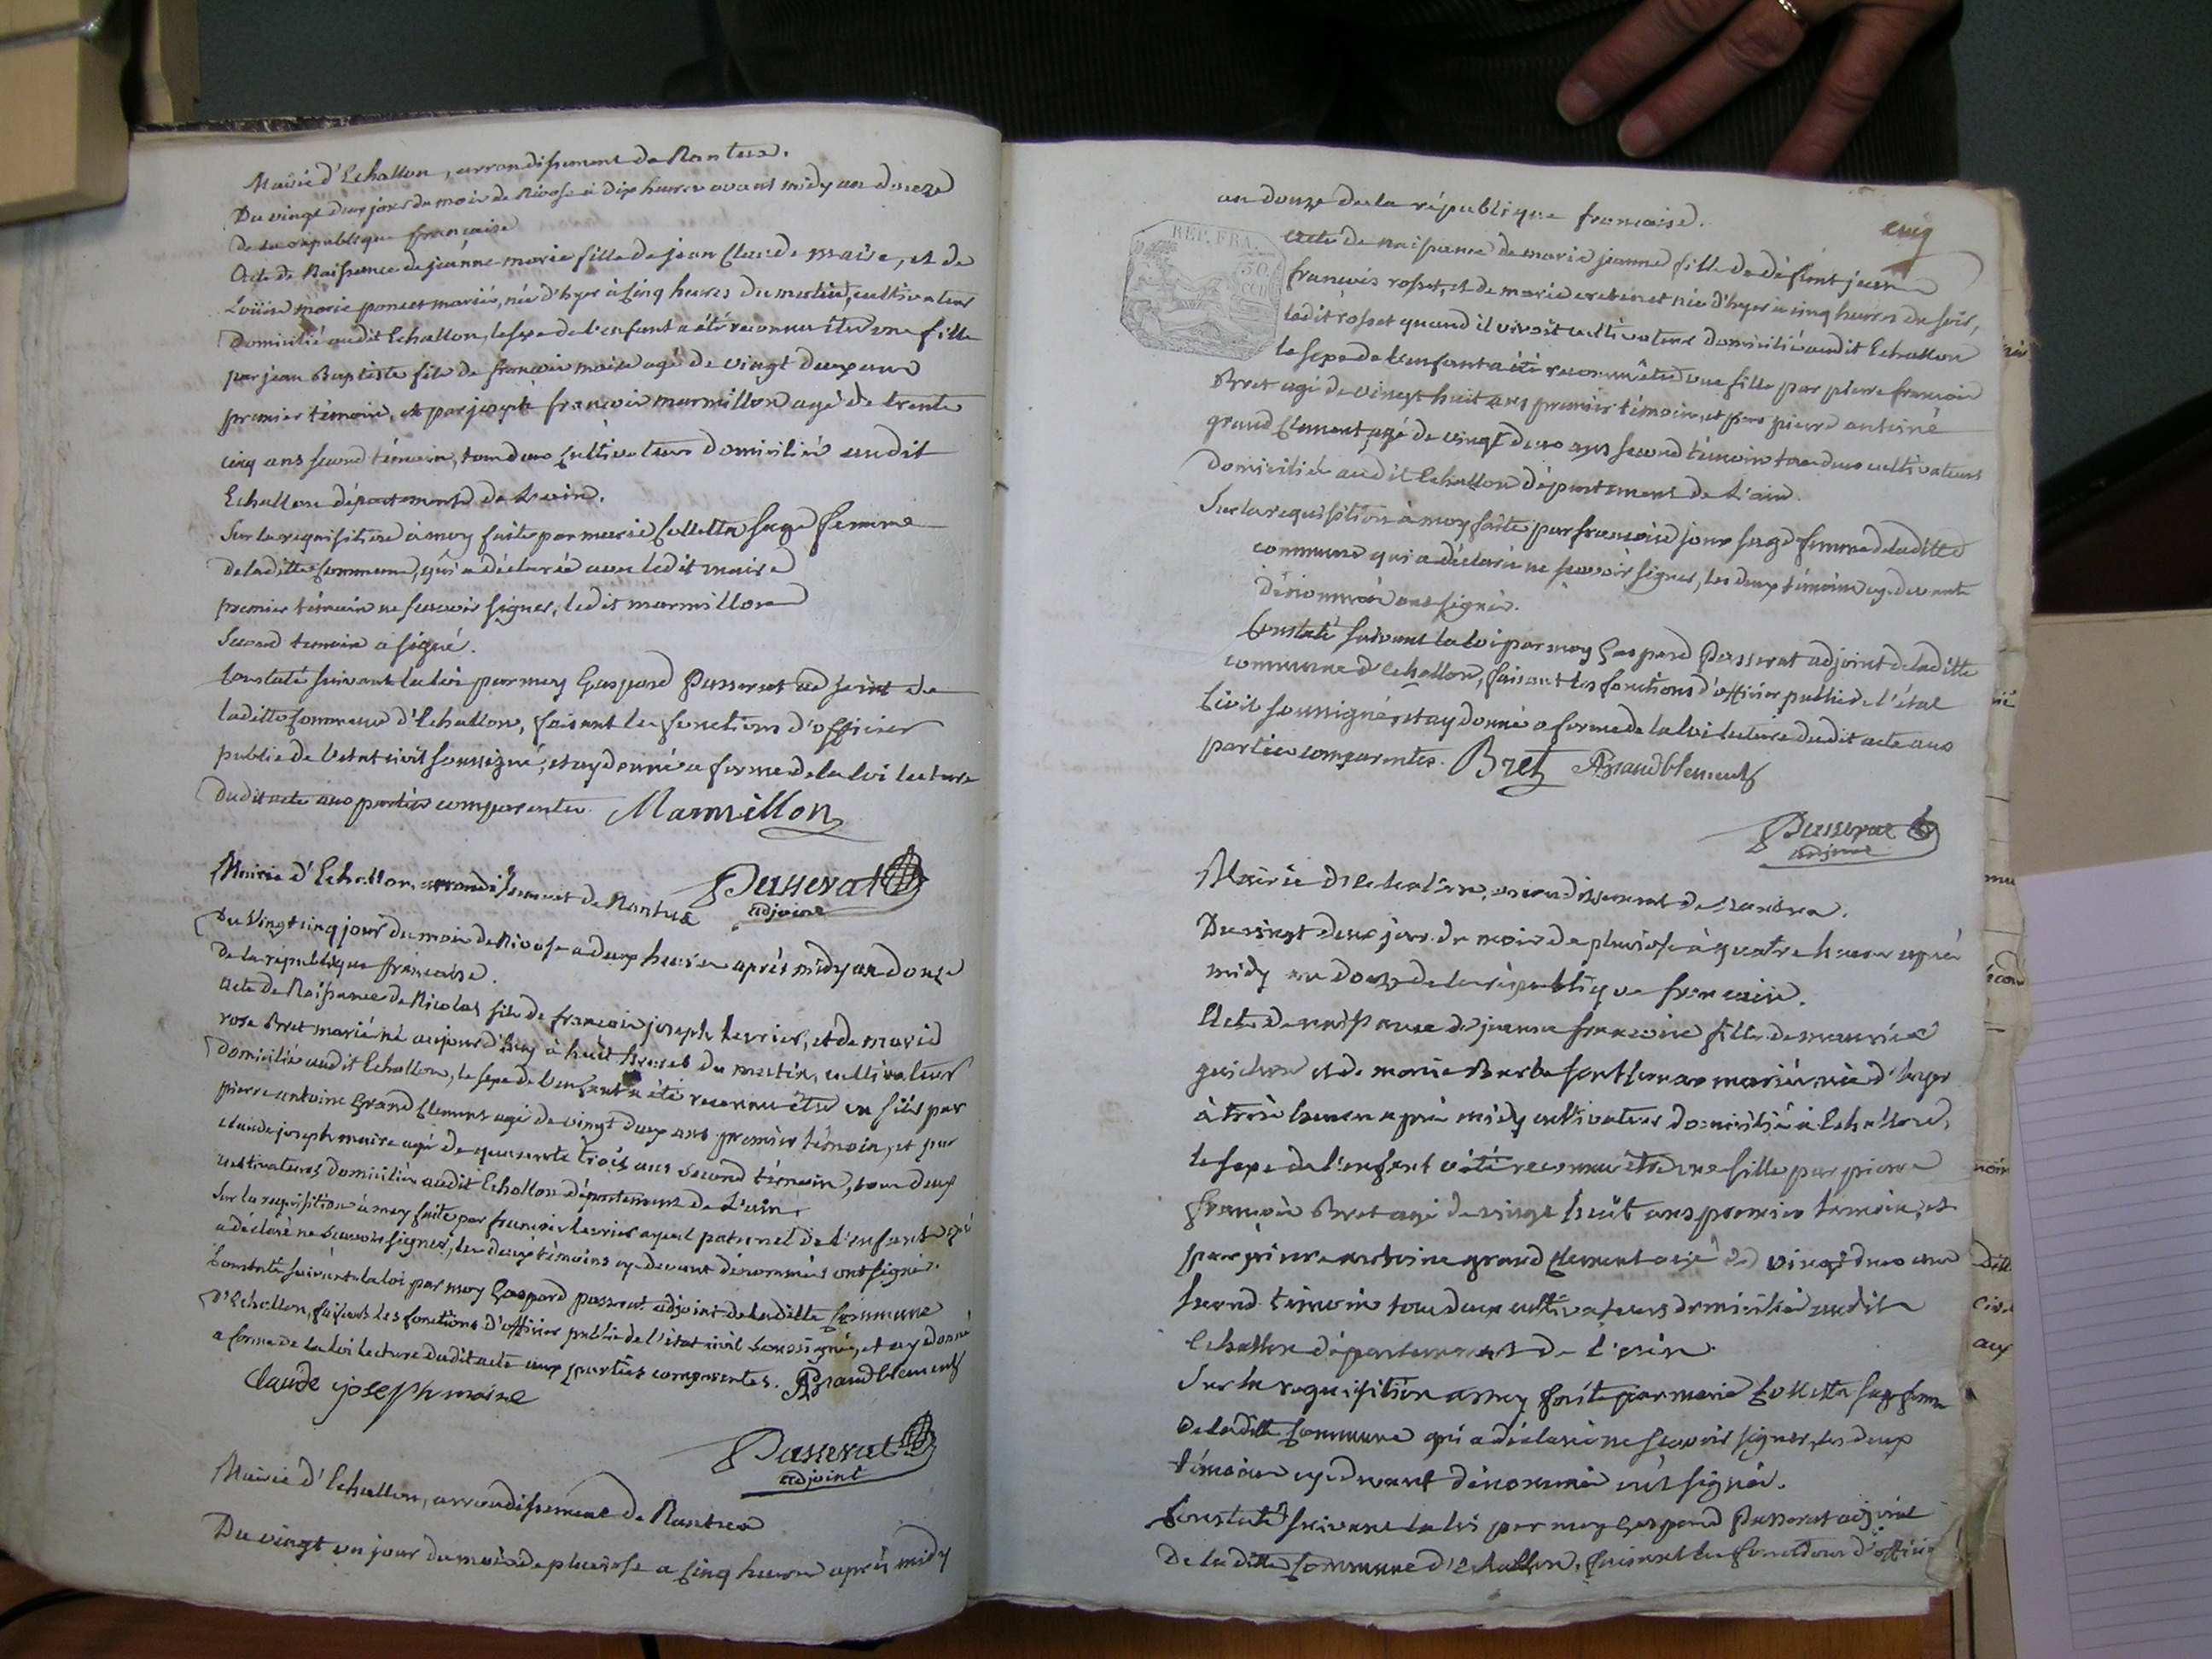 Mairie d'Echallon, arrondissement de Nantua.
Du vingt deux jour du mois de Nivose à dix heures avant midy an douze
de la république française
Acte de Naissance de jeanne marie fille de jean Claude maire, et de
Loüise marie poncet mariés, née d'hyer à Cinq heures du matin, cultivateur
Domicilié audit Echallon, le sexe de l'enfant a été reconnu être une fille
par jean Baptiste fils de françois maire agé de vingt deux ans
premier témoin, et par joseph françois marmillon agé de trente
cinq ans second témoin, tous deux Cultivateurs domiciliés audit
Echallon département de L'ain.
Sur la requisition à moy faite par marie Colletta sage femme
de laditte Commune, qui a déclaré avec ledit maire
premier témoin ne scavoir signer, ledit marmillon
Second temoin a signé.
Constaté suivant la loi par moy Gaspard Passerat adjoint de
laditte Commune d'Echallon, faisant les fonctions d'officier
public de l'etat civil soussigné, et ay donné a forme de la loi lecture
dudit acte aux parties comparentes. Marmillon
Passerat
adjoint
Mairie d'Echallon, arrondissement de Nantua
Du Vingt cinq jour du mois de Nivose a deux heures après midy an douze
de la république française.
Acte de Naissance de Nicolas fils de françois joseph levrier, et de marie
rose Bret mariés né aujourd'huy à huit heures du matin, cultivateur
domicilié audit Echallon, le sexe de l'enfant a été reconnu être un fils par
pierre antoine Grand Clement agé de vingt deux ans premier témoin, et par
claude joseph maire agé de quarante trois ans second témoin, tous deux
cultivateurs domiciliés audit Echallon département de L'ain.
Sur la requisition à moy faite par françois levrier ayeul paternel de l'enfant qui
a déclaré ne scavoir signer, les deux témoins cy devant dénommés ont signés.
Constaté suivant la loi par moy Gaspard passerat adjoint de laditte Commune
d'Echallon, faisant les fonctions d'officier public de l'état civil soussigné, et ay donné
a forme de la loi lecture dudit acte aux parties comparentes. PAGrandclement
Claude joseph maire
Passerat
adjoint
Mairie d'Echallon, arrondissement de Nantua
Du vingt un jour du mois de pluviose a Cinq heures après midy
an douze de la république française.
cinq
REP. FRA.
50
CEN
acte de naissance de marie jeanne fille de défunt jean
françois rosset, et de marie née d'hyer a cinq heures du soir,
ledit rosset quand il vivoit cultivateur domicilié audit Echallon
le sexe de l'enfant a été reconnu être une fille par pierre françois
Bret agé de vingt huit ans premier témoin, et par pierre antoine
grand Clement agé de vingt deux ans second témoin tous deux cultivateurs
Domiciliés audit Echallon département de L'ain.
Sur la requisition à moy faite par françoise sage femme de laditte
commune qui a déclaré ne scavoir signer, les deux témoins cy devant
dénommés ont signés.
Constaté suivant la loi par moy Gaspard Passerat adjoint de laditte
commune d'Echallon, faisant les fonctions d'officier public de l'état
Civil soussigné, et ay donné a forme de la loi lecture dudit acte aux
parties comparentes. Bret PAGrandclement
Passerat
adjoint
Mairie d'Echallon, arrondissement de Nantua.
Du vingt deux jour du mois de pluviose à quatre heures après
midy an douze de la république française.
Acte de naissance de jeanne françoise fille de maurice
guichon et de marie Barbe mariés née d'hyer
à trois heures après midy cultivateur domicilié à Echallon,
le sexe de l'enfant a été reconnu être une fille par pierre
françois Bret agé de vingt huit ans premier temoin, et
par pierre antoine grand Clement agé de vingt deux ans
second témoin tous deux cultivateurs domiciliés audit
Echallon département de l'ain.
Sur la requisition a moy faite par marie Colletta sage femme
de laditte Commune qui a déclaré ne scavoir signer, les deux
témoins cy devant dénommés ont signés.
Constaté suivant la loi par moy Gaspard Passerat adjoint
De laditte Commune d'Echallon, faisant les fonctions d'officier